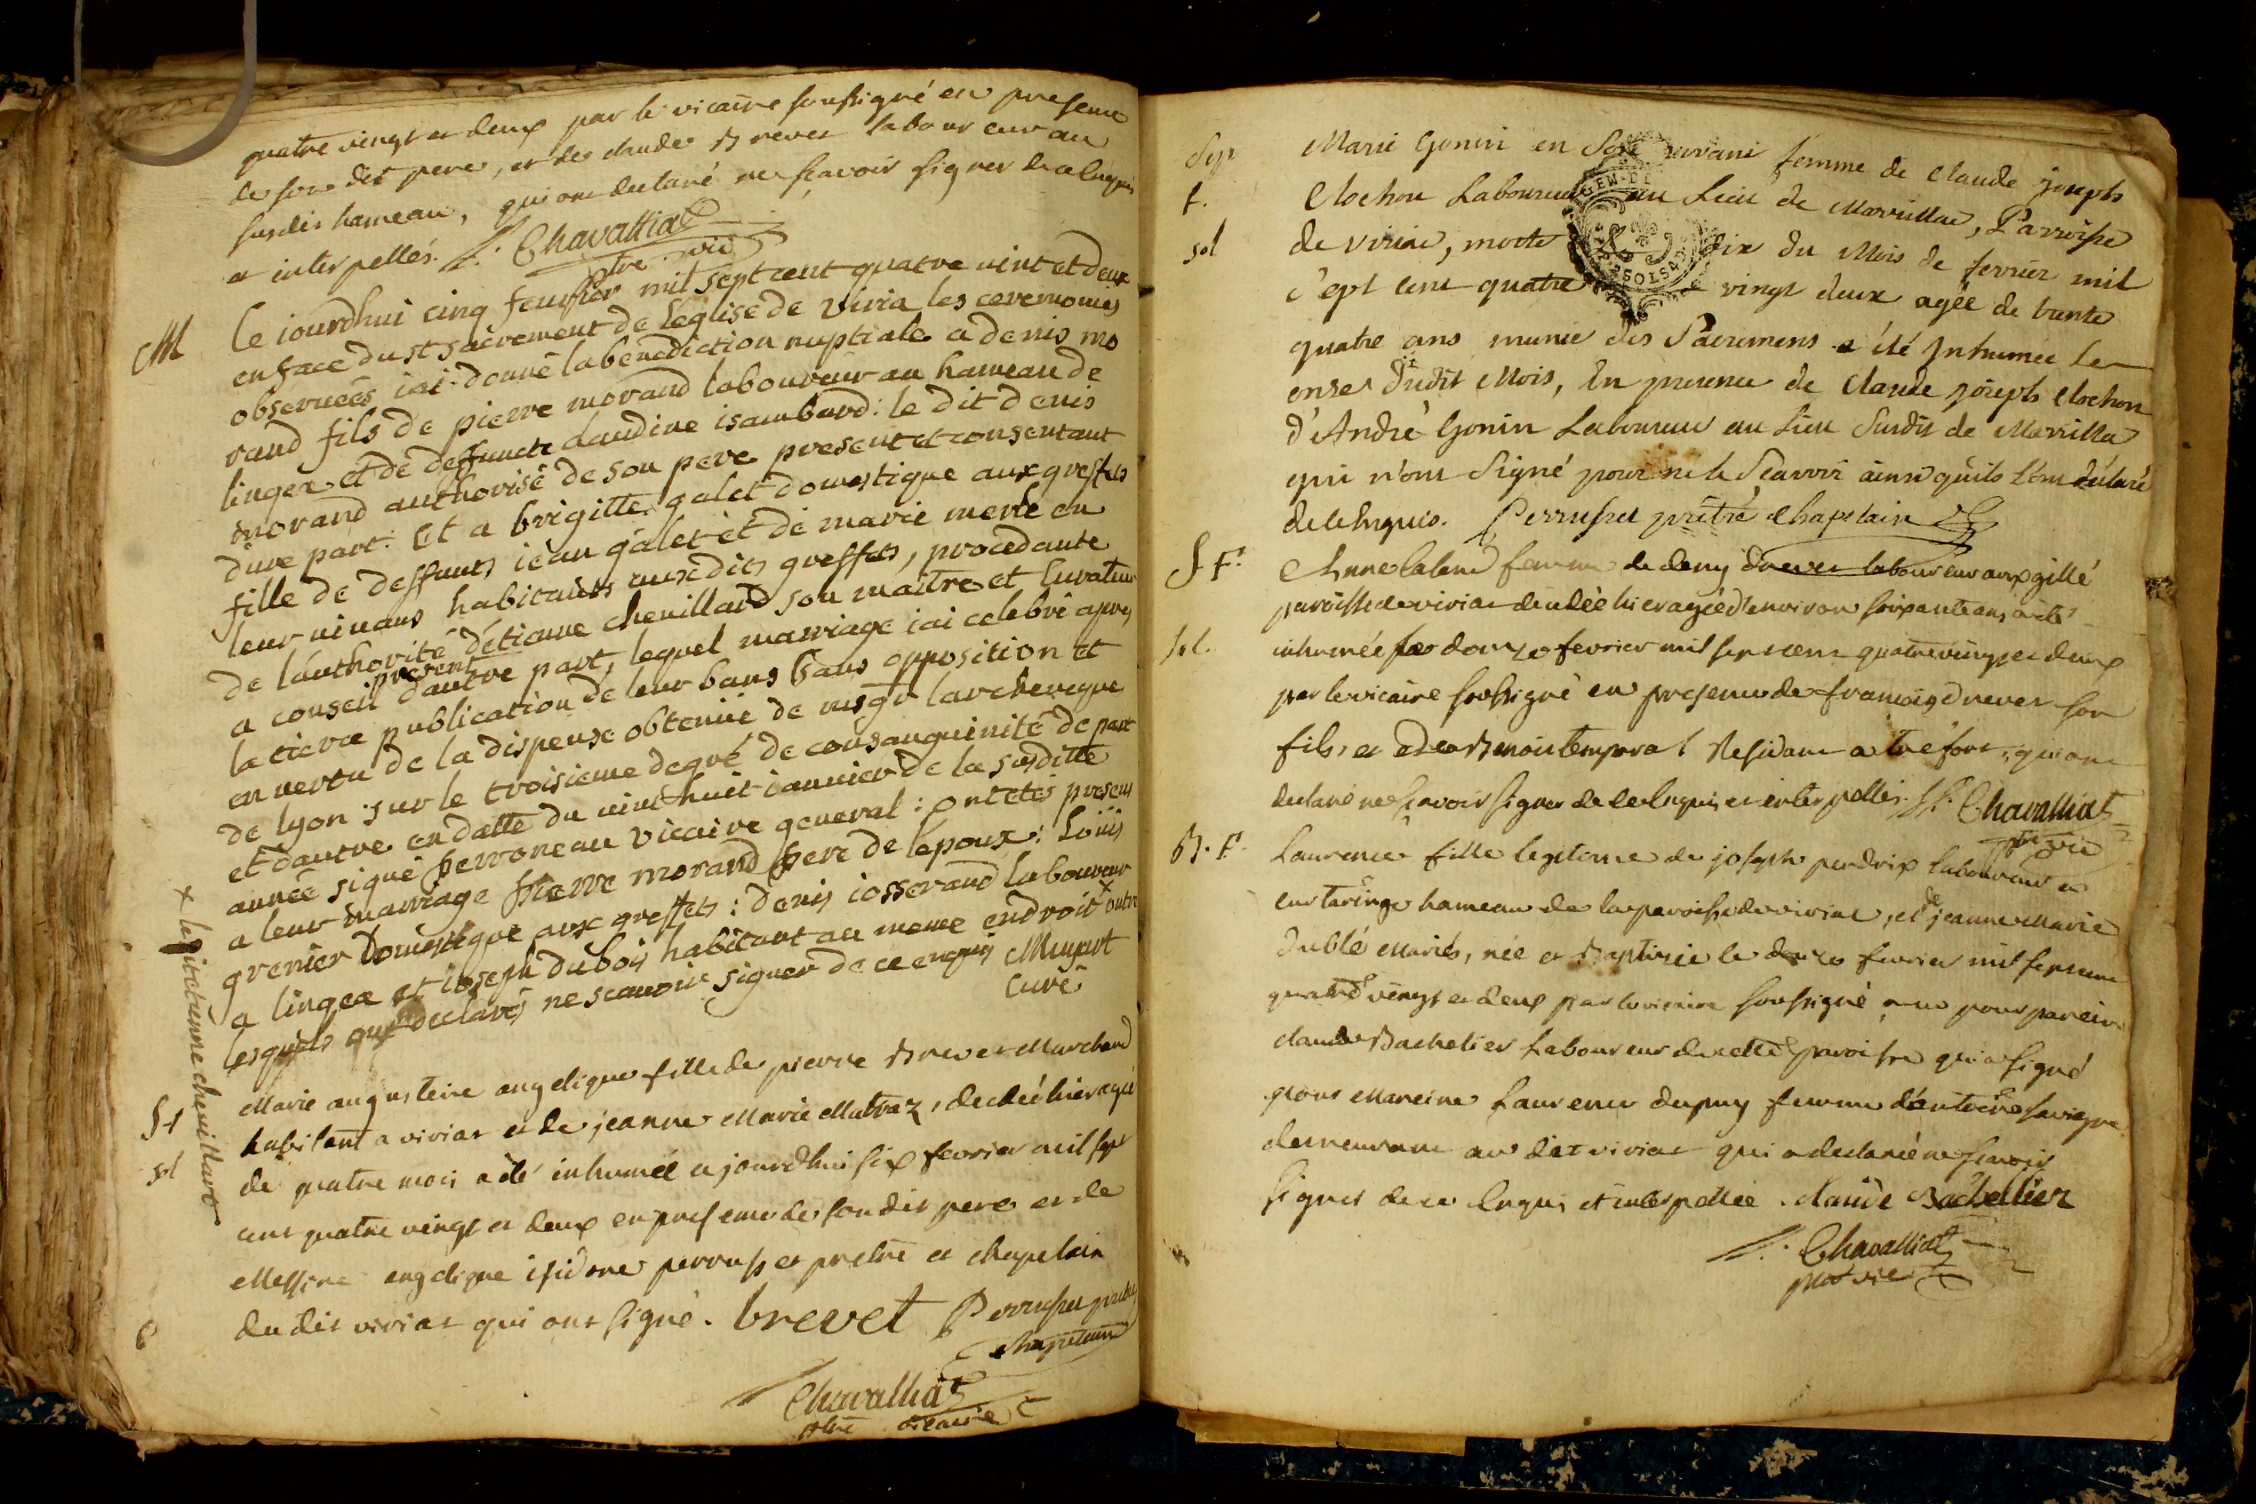 quatre vingt et deux par le vicaire soussigné en presence
de son dit pere, et de claude Brevet laboureur au
susdit hameau, qui ont declaré ne sçavoir signer de ce enquis
et interpellés. Chavalliat
ptre vic
M
Le iourdhui cinq feuvrier mil sept cent quatre vint et deux
en face du st sacrement de leglise de viria les ceremonies
observeés iai donné la benediction nuptiale a denis mo
rand fils de pierre morand laboureur au hameau de
lingea et de deffuncte claudine isambard: le dit denis
morand authorisé de son pere present et consentant
d'une part. Et a brigitte galet domestique aux greffets
fille de deffunts iean galet et de marie merle en
leur vivans habitants susdits greffets, procedante
de lauthorité d'etienne chevillard son maitre et curateur
present
a conseil d'autre part, lequel marriage iai celebré apres
la tierce publication de leur bans sans opposition et
en vertu de la dispense obtenue de msgr larcheveque
de lyon sur le troisieme degré de consanguinité de part
et dautre en datte du vint huit iannier de la susditte
année signé perroneau vicaire general: ont etés presens
a leur marriage pierre morand pere de lepoux: Loüis
grenier Domestique aux greffets: denis iosserand laboureur
a lingea et ioseph dubois habitant au meme endroit x outre
lesquels ont declarés ne scauoir signer de ce enquis
Curé
x le dit etienne chevillard
St
sol
Marie augusteine angelique fille de pierre Brevet Marchand
habitant a viriat et de jeanne Marie Matraz, decedée hier ageé
de quatre mois a été inhumée ajourdhui six fevrier mil sept
cent quatre vingt et deux en presence de son dit pere et de
Messire angelique isidore perrusset pretre et chapelain
du dit viriat qui ont signé. brevet Perrusset pretre
chapelain
6
Chavalliat
ptre vicaire
Sep
f.
sol
Marie Gonin en son vivant femme de Claude Joseph
Clochon Laboureur au Lieu de Marvillac, Parroisse
de viriac, morte dix du Mois de fevrier mil
c'ept cent quatre vingt deux agée de trante
quatre ans munie des Sacremens a été Inhumée le
onse dudit Mois, En presence de Claude joseph Clochon
d'André Gonin Laboureur au Lieu Susdit de Marvilla
qui n'ont Signé pour ne le Sçavoir ainsi qu'ils l'ont déclaré
de ce Enquis. Perrusset prêtre Chapelain
S F.
Sol.
Anne femme de deny drevet laboureur aux gillé
paroisse de viriac decedée hier agéed'environ soixante ans a eté
inhumée le douze fevrier mil sept cent quatre vingt et deux
par le vicaire soussigné en presence de francois drevet son
fils, et de Benoit Résidant a tréfort, qui ont
declaré ne sçavoir signer de ce Enquis et interpellés. Chavalliat
ptre vic
B. F.
Laurence fille legitime de joseph perdrix laboureur
en taringe hameau de la paroisse de viriat, et de jeanne Marie
Dublé Mariés, née et Baptisée le douze fevrier mil sept cent
quatre vingt et deux par le vicaire soussigné a eu pour parein
claude Bachelier Laboureur de cette paroisse qui a signé
pour Mareine Laurence dupuy femme d'antoine
demeurant au dit viriat qui a declaré ne scavoir
signer de ce Enquis et interpellée. Claude Bachellier
Chavalliat
ptre vic
GEN. DE